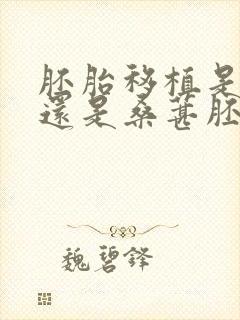 胚胎移植是
還是桑葚胚
魏碧鋒